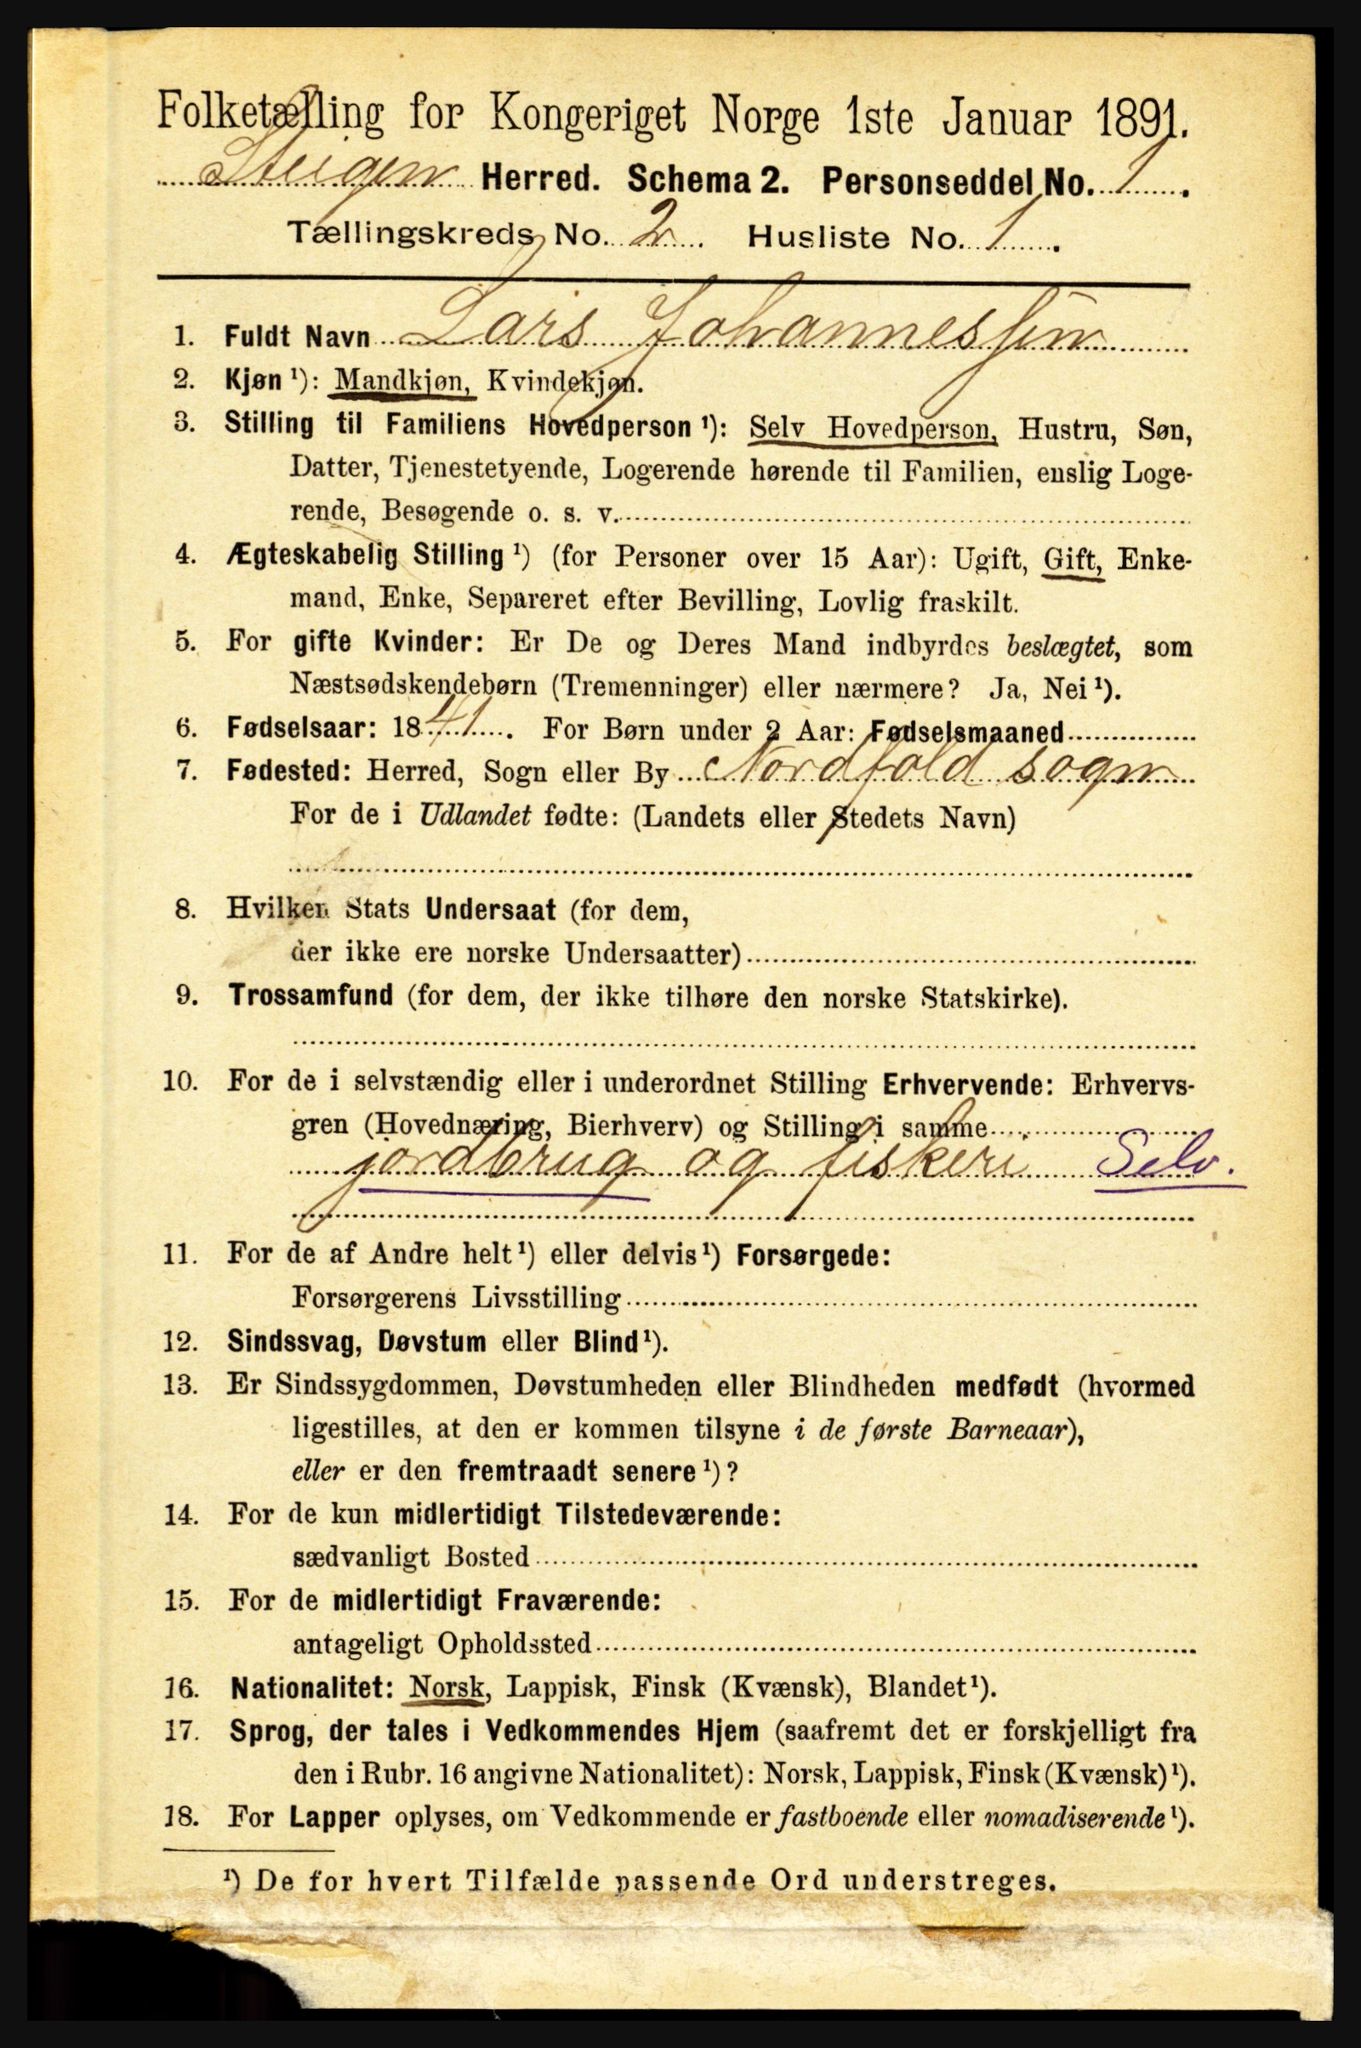 Folketælling for Kongeriget Norge 1ste Januar 1891.
Steigen Herred. Schema 2. Personseddel No. 1.
Tællingskreds No. 2. Husliste No. 1.
1. Fuldt Navn Lars Johannessen
2. Kjøn ¹): Mandkjøn, Kvindekjøn.
3. Stilling til Familiens Hovedperson ¹): Selv Hovedperson, Hustru, Søn,
Datter, Tjenestetyende, Logerende hørende til Familien, enslig Loge-
rende, Besøgende o. s. v.
4. Ægteskabelig Stilling ¹) (for Personer over 15 Aar): Ugift, Gift, Enke-
mand, Enke, Separeret efter Bevilling, Lovlig fraskilt.
5. For gifte Kvinder: Er De og Deres Mand indbyrdes beslægtet, som
Næstsødskendebørn (Tremenninger) eller nærmere? Ja, Nei ¹).
6. Fødselsaar: 1841. For Børn under 2 Aar: Fødselsmaaned
7. Fødested: Herred, Sogn eller By Nordfold sogn
For de i Udlandet fødte: (Landets eller Stedets Navn)
8. Hvilken Stats Undersaat (for dem,
der ikke ere norske Undersaatter)
9. Trossamfund (for dem, der ikke tilhøre den norske Statskirke).
10. For de i selvstændig eller i underordnet Stilling Erhvervende: Erhvervs-
gren (Hovednæring, Bierhverv) og Stilling i samme
jordbrug og fiskeri Selv.
11. For de af Andre helt ¹) eller delvis ¹) Forsørgede:
Forsørgerens Livsstilling
12. Sindssvag, Døvstum eller Blind ¹).
13. Er Sindssygdommen, Døvstumheden eller Blindheden medfødt (hvormed
ligestilles, at den er kommen tilsyne i de første Barneaar),
eller er den fremtraadt senere ¹)?
14. For de kun midlertidigt Tilstedeværende:
sædvanligt Bosted
15. For de midlertidigt Fraværende:
antageligt Opholdssted
16. Nationalitet: Norsk, Lappisk, Finsk (Kvænsk), Blandet ¹).
17. Sprog, der tales i Vedkommendes Hjem (saafremt det er forskjelligt fra
den i Rubr. 16 angivne Nationalitet): Norsk, Lappisk, Finsk (Kvænsk) ¹).
18. For Lapper oplyses, om Vedkommende er fastboende eller nomadiserende ¹).
¹) De for hvert Tilfælde passende Ord understreges.